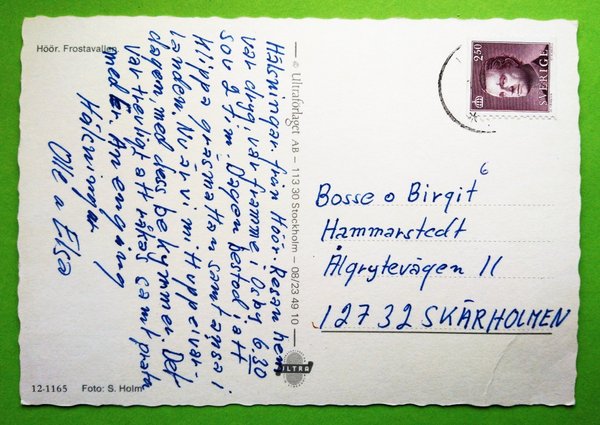 Höör. Frostavallen
Hälsningar från Höör. Resan hem
var dryg; var framme i Osby 6.30
sov 2 t.m. Dagen bestod; att
klippa gräsmattan samt ansa i
landen. Nu är vi mitt uppe i var-
dagen med dess bekymmer. Det
var trevligt att råkas samt prata
med Er än en gång
Hälsningar
Olle o Elsa
12-1165 Foto: S. Holm
© Ultraförlaget AB – 113 30 Stockholm – 08/23 49 10
ULTRA
250
SVERIGE
Bosse o Birgit
Hammarstedt
Ålgrytevägen 11
12732 SKÄRHOLMEN